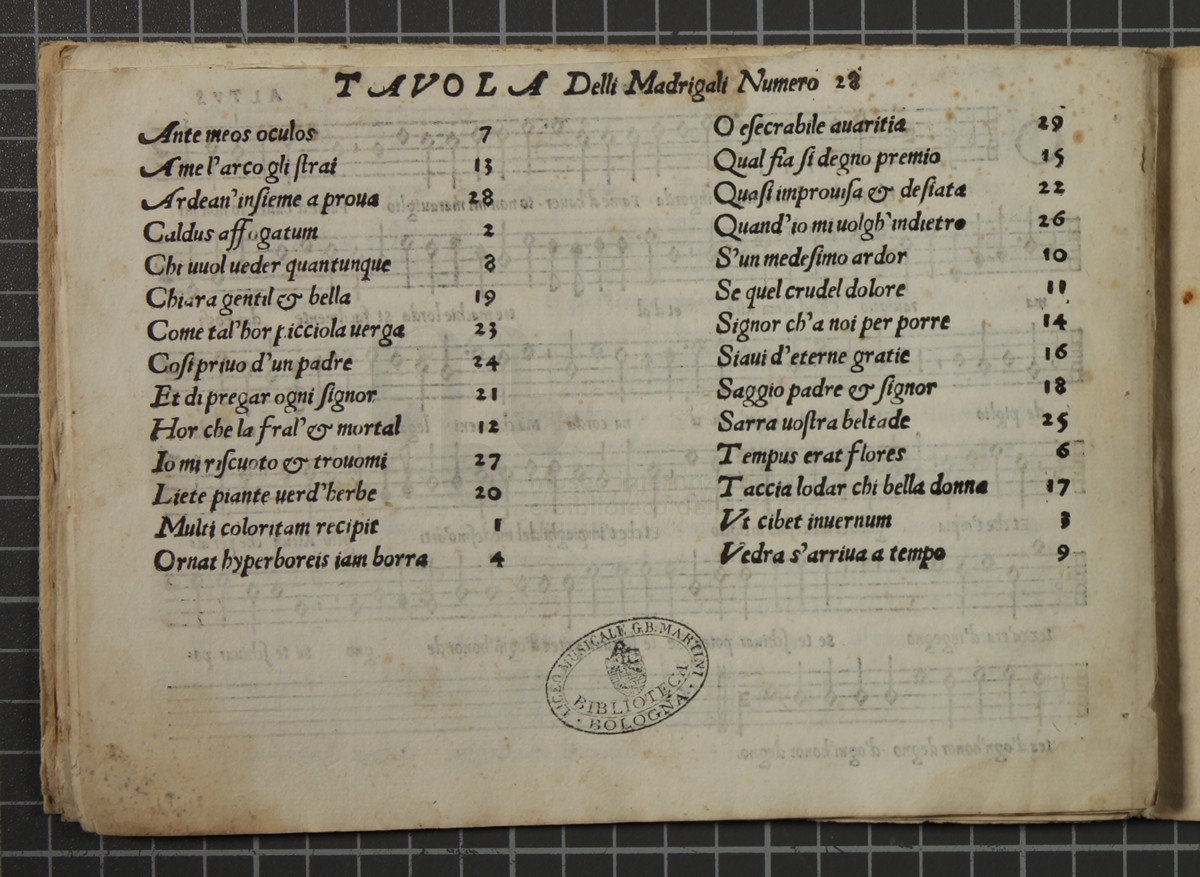 TAVOLA Delli Madrigali Numero 28
Ante meos oculos 7
A me l'arco gli ſtrai 13
Ardean' inſieme a proua 28
Caldus affogatum 2
Chi uuol ueder quantunque 8
Chiara gentil & bella 19
Come tal'hor picciola uerga 23
Coſi priuo d'un padre 24
Et di pregar ogni ſignor 21
Hor che la fral' & mortal 12
Io mi riſcuoto & trouomi 27
Liete piante uerd'herbe 20
Multi coloritam recipit 1
Ornat hyperboreis iam borra 4
O eſecrabile auaritia 29
Qual fia ſi degno premio 15
Quaſi improuiſa & deſiata 22
Quand'io mi uolgh' indietro 26
S'un medeſimo ardor 10
Se quel crudel dolore 11
Signor ch'a noi per porre 14
Siaui d'eterne gratie 16
Saggio padre & ſignor 18
Sarra uoſtra beltade 25
Tempus erat flores 6
Taccia lodar chi bella donna 17
Vt cibet inuernum 3
Vedra s'arriua a tempo 9
LICEO MUSICALE G.B. MARTINI
BIBLIOTECA
BOLOGNA